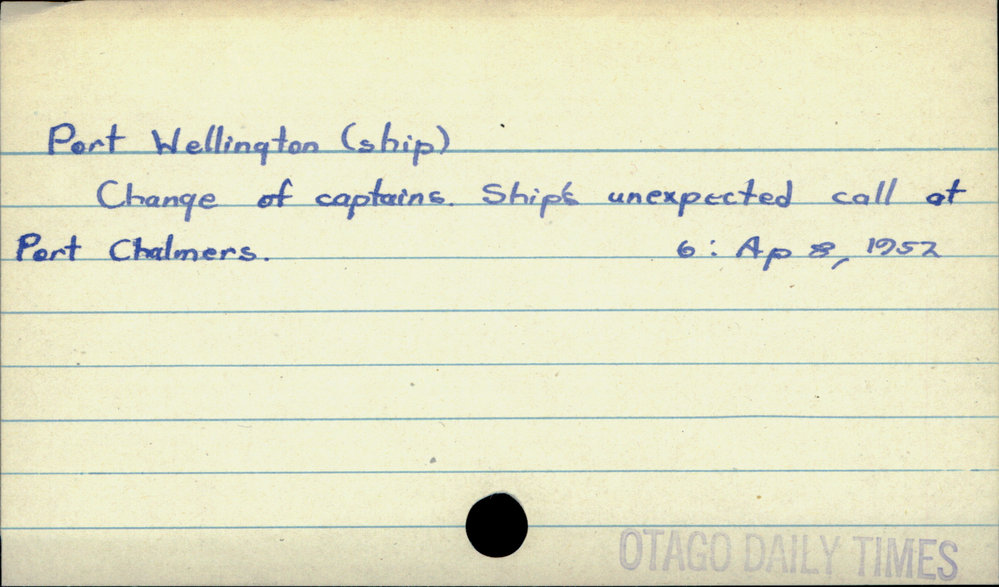 Port Wellington (ship)
Change of captains. Ship's unexpected call at
Port Chalmers. 6: Ap 8, 1952
OTAGO DAILY TIMES